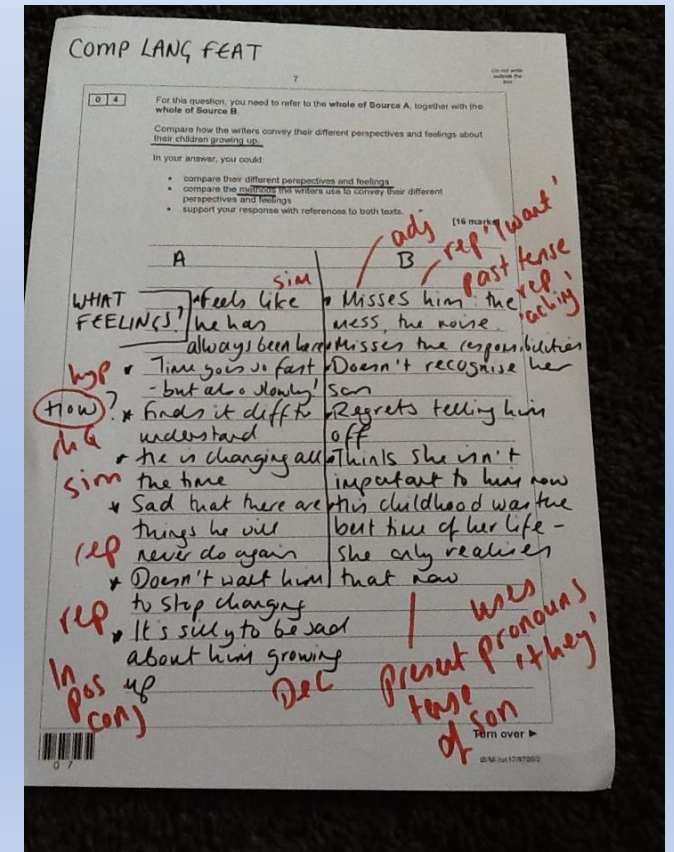 COMP LANG FEAT
7
Do not write
outside the
box
0 4
For this question, you need to refer to the whole of Source A, together with the
whole of Source B.
Compare how the writers convey their different perspectives and feelings about
their children growing up.
In your answer, you could:
• compare their different perspectives and feelings
• compare the methods the writers use to convey their different
perspectives and feelings
• support your response with references to both texts.
[16 marks
adj
rep 'I want'
past tense
rep
'aching'
A
B
sim
WHAT
FEELINGS?
Feels like
he has
always been here
hyp
Time goes so fast
- but also slowly!
How?
Finds it diff to
understand
rh Q
He is changing all
the time
sim
Sad that there are
things he will
never do again
rep
Doesn't want him
to stop changing
rep
It's silly to be sad
about him growing
up
In pos
conj
Dec
Misses him: the
mess, the noise
Misses the responsibilities
Doesn't recognise her
son
Regrets telling him
off
Thinks she isn't
important to him now
His childhood was the
best time of her life -
she only realises
that now
present
tense
of son
uses
pronouns
'they'
Turn over ►
0 7
IB/M/Jun17/8700/2